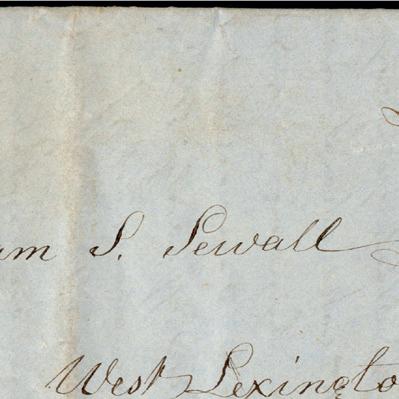 am S. Sewall
West Lexingto